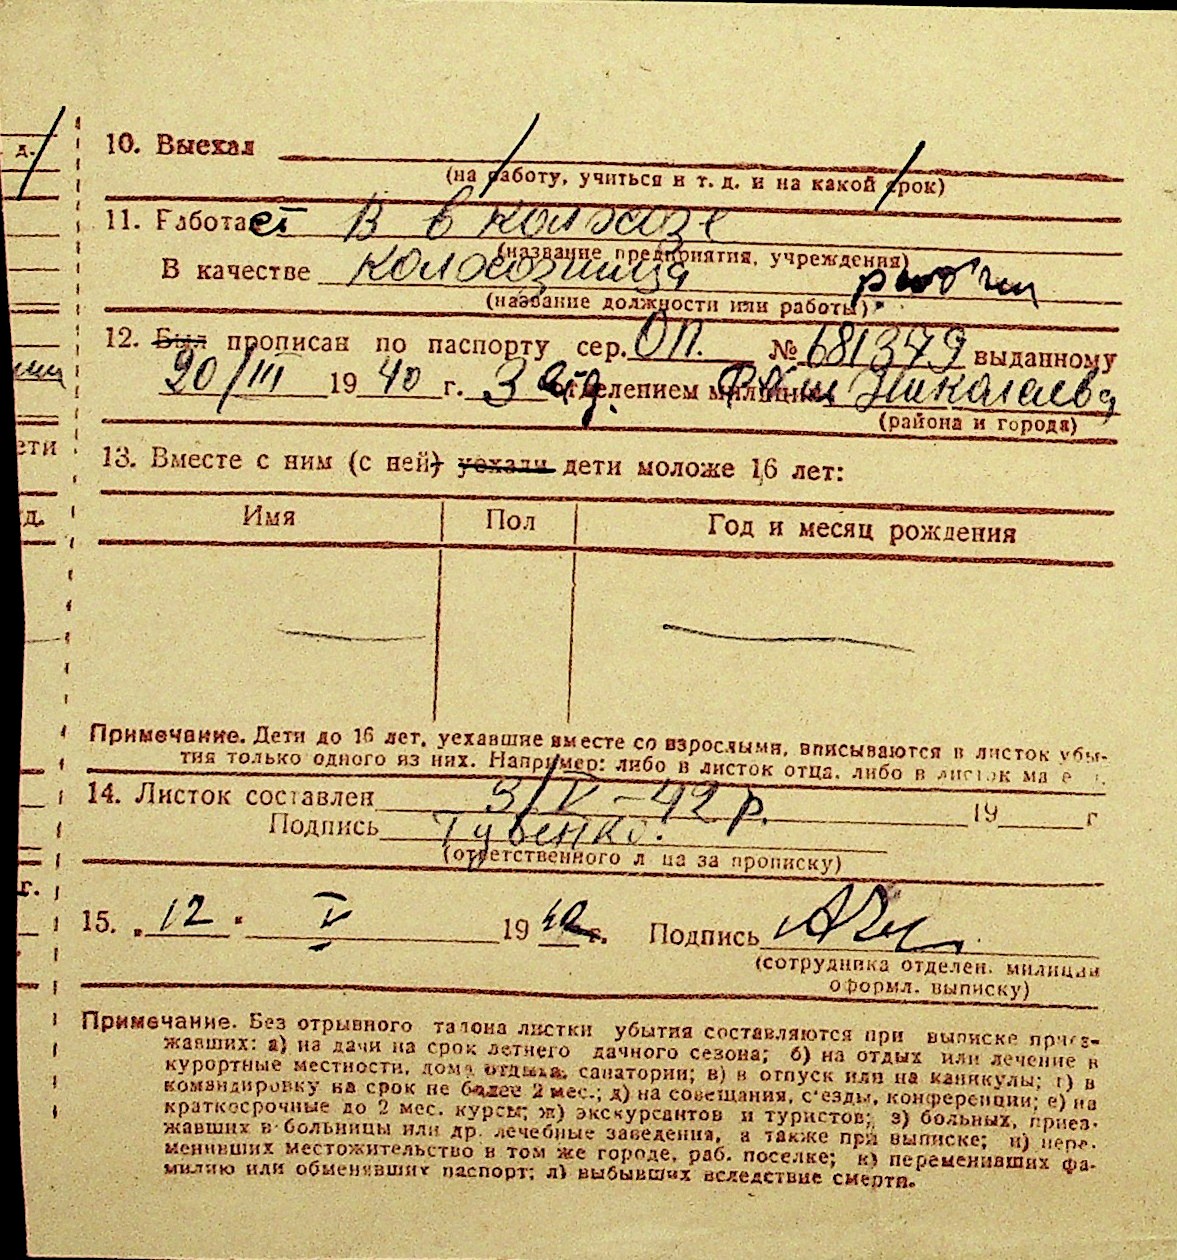 д.
10. Выехал
(на работу, учиться и т. д. и на какой срок)
11. Работает В в колхозе
(название предприятия, учреждения)
В качестве колхозница рабочи
(название должности или работы)
12. Был прописан по паспорту сер. ОП. № 681379 выданному
20/III 1940 г. 3 отделением милиции Николаева
(района и города)
ети
13. Вместе с ним (с ней) уехали дети моложе 16 лет:
Имя Пол Год и месяц рождения
Примечание. Дети до 16 лет, уехавшие вместе со взрослыми, вписываются в листок убы-
тия только одного из них. Например: либо в листок отца, либо в листок ма е
14. Листок составлен 3/V-42 р. 19 г
Подпись
(ответственного л ца за прописку)
г.
15. 12. V 1942 г. Подпись
(сотрудника отделен. милиции
оформл. выписку)
Примечание. Без отрывного талона листки убытия составляются при выписке приез-
жавших: а) на дачи на срок летнего дачного сезона; б) на отдых или лечение в
курортные местности, дома отдыха, санатории; в) в отпуск или на каникулы; г) в
командировку на срок не более 2 мес.; д) на совещания, с'езды, конференции; е) на
краткосрочные до 2 мес. курсы; ж) экскурсантов и туристов; з) больных, приез-
жавших в больницы или др. лечебные заведения, а также при выписке; и) пере-
менивших местожительство в том же городе, раб. поселке; к) переменивших фа-
милию или обменявших паспорт; л) выбывших вследствие смерти.